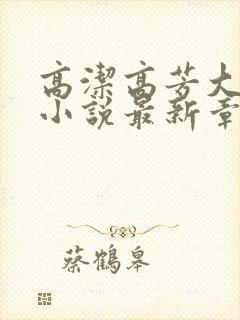 高潔高芳大
小說最新章
蔡鶴皋